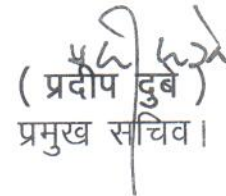 ( प्रदीप दुबे )
प्रमुख सचिव।